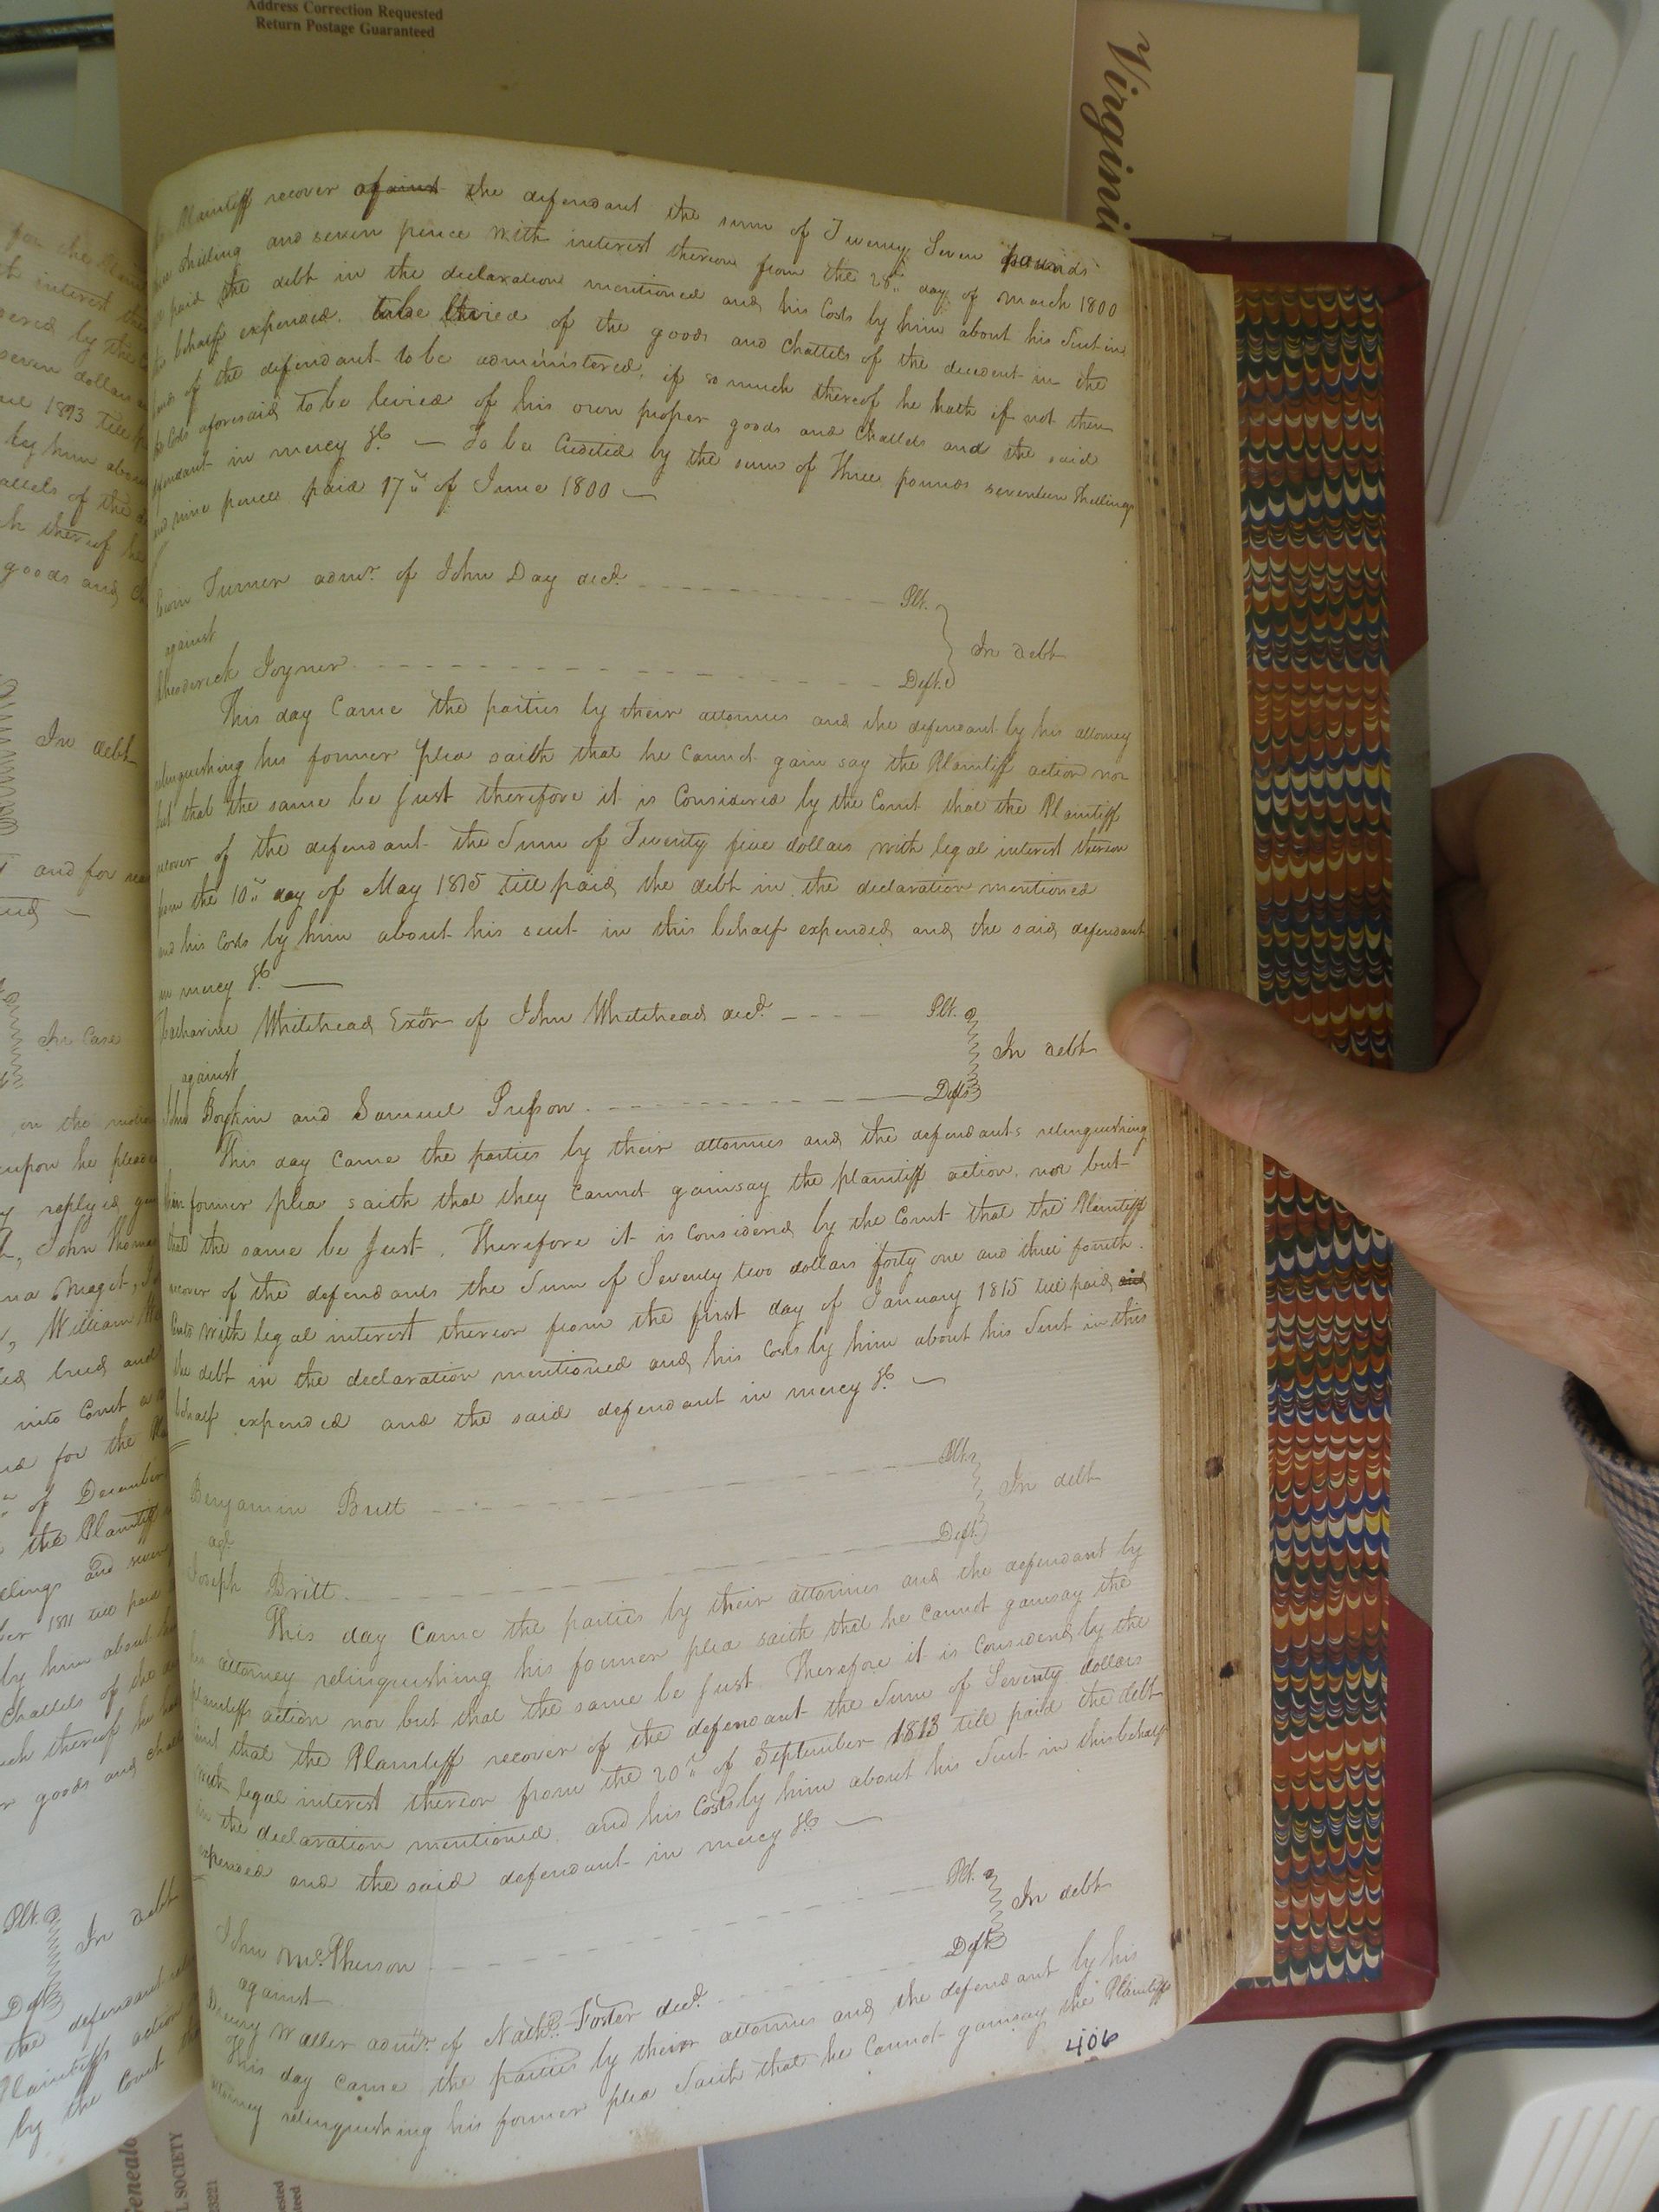 Address Correction Requested
Return Postage Guaranteed
Virgini
Plaintiff recover against the defendant the sum of Twenty Seven pounds
shilling and seven pence with interest thereon from the 28th day of March 1800
paid the debt in the declaration mentioned and his Costs by him about his Suit in
behalf expended. to be levied of the goods and Chattels of the decedent in the
hands of the defendant to be administered, if so much thereof he hath if not then
Costs aforesaid to be levied of his own proper goods and Chattels and the said
defendant in mercy &c — To be Credited by the sum of Three pounds seventeen Shillings
and nine pence paid 17th of June 1800 —
Turner admr. of John Day decd. Plt.
against In debt
Joyner Deft.
This day Came the parties by their attornies and the defendant by his attorney
relinquishing his former plea saith that he Cannot gain say the Plaintiff action nor
but that the same be Just therefore it is Considered by the Court that the Plaintiff
recover of the defendant the Sum of Twenty five dollars with legal interest thereon
from the 10th day of May 1815 till paid, the debt in the declaration mentioned
and his Costs by him about his suit in this behalf expended and the said defendant
in mercy &c —
Catharine Whitehead Exor of John Whitehead decd. Plt.
against In debt
John Boykin and Samuel Presson. Defts
This day Came the parties by their attornies and the defendants relinquishing
their former plea saith that they Cannot gainsay the plaintiff action. nor but
that the same be Just. Therefore it is Considered by the Court that the Plaintiff
recover of the defendants the Sum of Seventy two dollars forty one and three fourth
Cents with legal interest thereon from the first day of January 1815 till paid and
the debt in the declaration mentioned and his Costs by him about his Suit in this
behalf expended and the said defendant in mercy &c —
Benjamin Britt Plt.
agt. In debt
Joseph Britt. Deft.
This day Came the parties by their attornies and the defendant by
his attorney relinquishing his former plea saith that he Cannot gainsay the
plaintiffs action nor but that the same be Just. Therefore it is Considered by the
Court that the Plaintiff recover of the defendant the Sum of Seventy dollars
with legal interest thereon from the 20th of September 1813 till paid the debt
in the declaration mentioned, and his Costs by him about his Suit in this behalf
expended and the said defendant in mercy &c —
John McPherson Plt.
against In debt
Drury Waller admr. of Nathl. Foster decd. Deft
This day came the parties by their attornies and the defendant by his
attorney relinquishing his former plea Saith that he Cannot gainsay the Plaintiffs
406
In debt
and for
In Case
upon he
replyed
John Thomas
William
into Court
for the
of December
the Plaintiff
1811 till paid
by him about
Chattels of the
thereof he
goods and
Plt.
In debt
Deft
the defendant
Plaintiffs action
by the Court
SOCIETY
23221